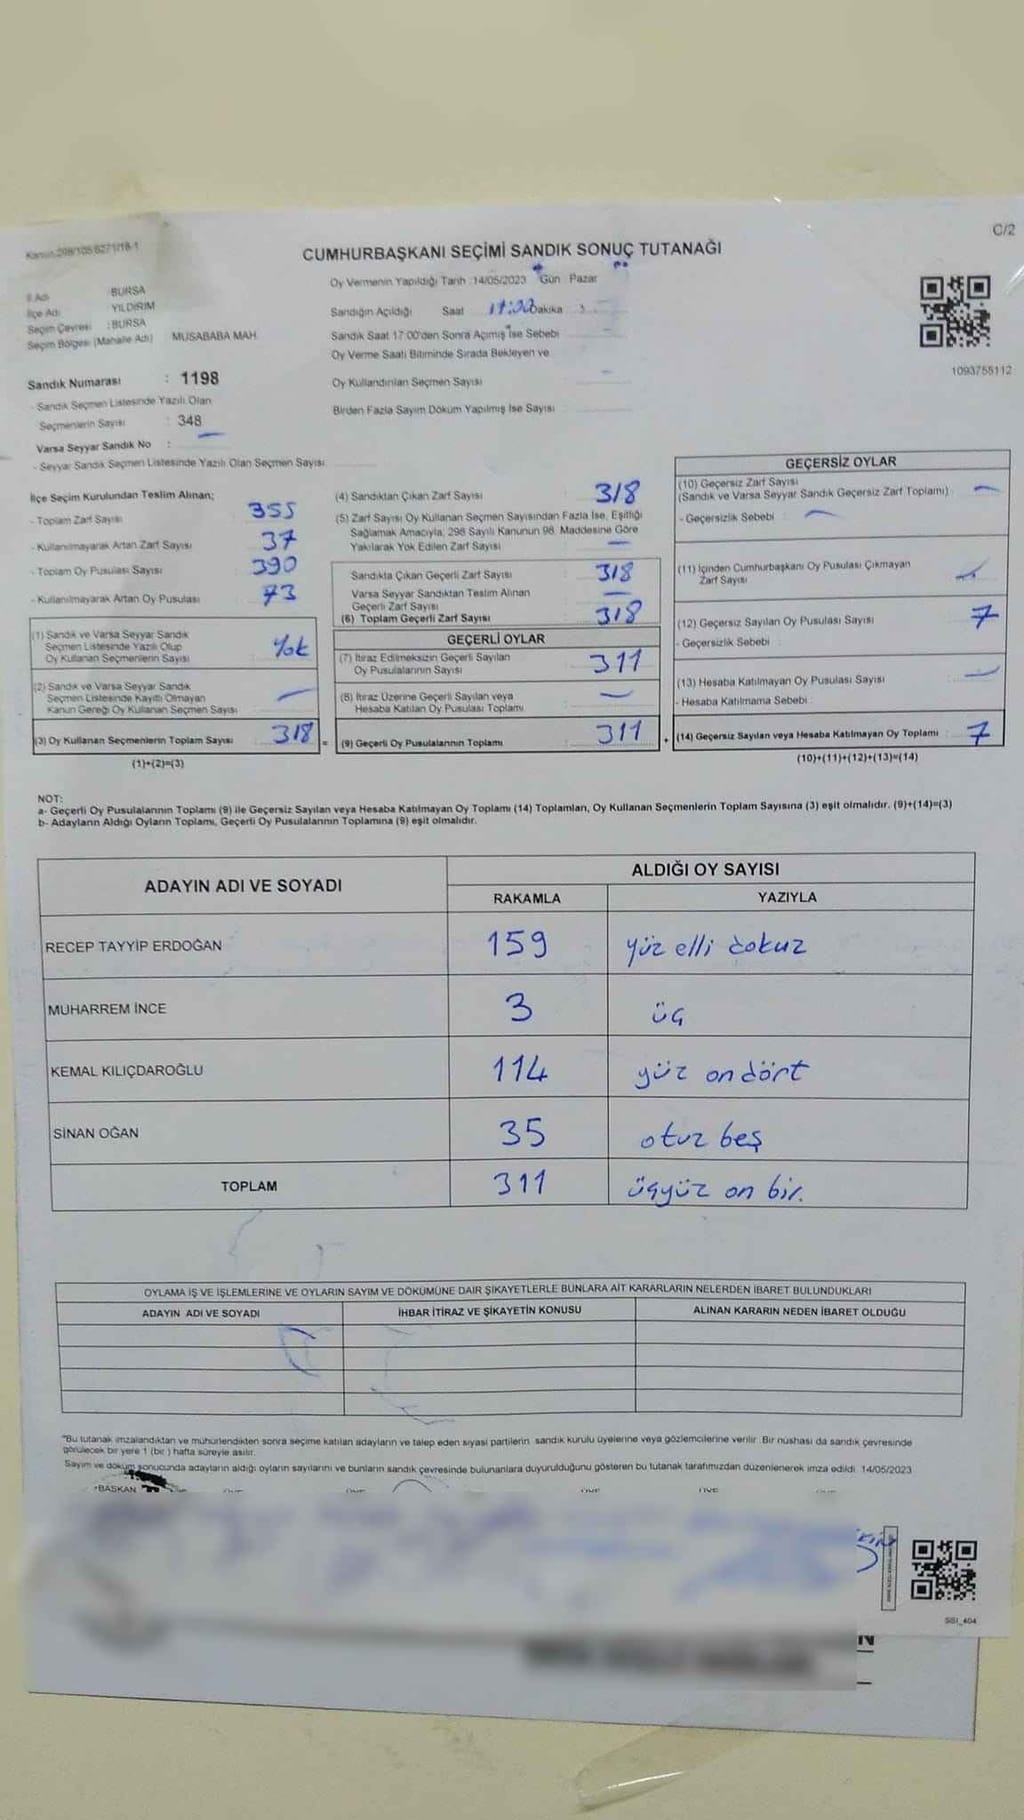 Kanun:298/105 6271/18-1
C/2
CUMHURBAŞKANI SEÇİMİ SANDIK SONUÇ TUTANAĞI
İl Adı BURSA
İlçe Adı YILDIRIM
Seçim Çevresi : BURSA
Seçim Bölgesi (Mahalle Adı) MUSABABA MAH.
Oy Vermenin Yapıldığı Tarih :14/05/2023 Gün : Pazar
Sandığın Açıldığı Saat 17:00 Dakika :
Sandık Saat 17:00'den Sonra Açımış İse Sebebi
Oy Verme Saati Bitiminde Sırada Bekleyen ve
Oy Kullandırılan Seçmen Sayısı
Birden Fazla Sayım Döküm Yapılmış İse Sayısı
1093755112
Sandık Numarası : 1198
- Sandık Seçmen Listesinde Yazılı Olan
Seçmenlerin Sayısı : 348
Varsa Seyyar Sandık No : —
- Seyyar Sandık Seçmen Listesinde Yazılı Olan Seçmen Sayısı
İlçe Seçim Kurulundan Teslim Alınan;
- Toplam Zarf Sayısı 355
- Kullanılmayarak Artan Zarf Sayısı 37
- Toplam Oy Pusulası Sayısı 390
- Kullanılmayarak Artan Oy Pusulası 73
(1) Sandık ve Varsa Seyyar Sandık
Seçmen Listesinde Yazılı Olup
Oy Kullanan Seçmenlerin Sayısı
(2) Sandık ve Varsa Seyyar Sandık
Seçmen Listesinde Kayıtlı Olmayan
Kanun Gereği Oy Kullanan Seçmen Sayısı —
(3) Oy Kullanan Seçmenlerin Toplam Sayısı 318 =
(1)+(2)=(3)
(4) Sandıktan Çıkan Zarf Sayısı : 318
(5) Zarf Sayısı Oy Kullanan Seçmen Sayısından Fazla İse, Eşitliği
Sağlamak Amacıyla, 298 Sayılı Kanunun 98. Maddesine Göre
Yakılarak Yok Edilen Zarf Sayısı : —
Sandıkta Çıkan Geçerli Zarf Sayısı : 318
Varsa Seyyar Sandıktan Teslim Alınan
Geçerli Zarf Sayısı : —
(6) Toplam Geçerli Zarf Sayısı : 318
GEÇERLİ OYLAR
(7) İtiraz Edilmeksizin Geçerli Sayılan
Oy Pusulalarının Sayısı : 311
(8) İtiraz Üzerine Geçerli Sayılan veya
Hesaba Katılan Oy Pusulası Toplamı : —
(9) Geçerli Oy Pusulalarının Toplamı : 311 +
GEÇERSİZ OYLAR
(10) Geçersiz Zarf Sayısı
(Sandık ve Varsa Seyyar Sandık Geçersiz Zarf Toplamı) : —
- Geçersizlik Sebebi : —
(11) İçinden Cumhurbaşkanı Oy Pusulası Çıkmayan
Zarf Sayısı : —
(12) Geçersiz Sayılan Oy Pusulası Sayısı : 7
- Geçersizlik Sebebi :
(13) Hesaba Katılmayan Oy Pusulası Sayısı : —
- Hesaba Katılmama Sebebi :
(14) Geçersiz Sayılan veya Hesaba Katılmayan Oy Toplamı : 7
(10)+(11)+(12)+(13)=(14)
NOT:
a- Geçerli Oy Pusulalarının Toplamı (9) ile Geçersiz Sayılan veya Hesaba Katılmayan Oy Toplamı (14) Toplamları, Oy Kullanan Seçmenlerin Toplam Sayısına (3) eşit olmalıdır. (9)+(14)=(3)
b- Adayların Aldığı Oyların Toplamı, Geçerli Oy Pusulalarının Toplamına (9) eşit olmalıdır.
ADAYIN ADI VE SOYADI ALDIĞI OY SAYISI
RAKAMLA YAZIYLA
RECEP TAYYİP ERDOĞAN 159 yüz elli dokuz
MUHARREM İNCE 3 üç
KEMAL KILIÇDAROĞLU 114 yüz on dört
SİNAN OĞAN 35 otuz beş
TOPLAM 311 üçyüz on bir.
OYLAMA İŞ VE İŞLEMLERİNE VE OYLARIN SAYIM VE DÖKÜMÜNE DAİR ŞİKAYETLERLE BUNLARA AİT KARARLARIN NELERDEN İBARET BULUNDUKLARI
ADAYIN ADI VE SOYADI İHBAR İTİRAZ VE ŞİKAYETİN KONUSU ALINAN KARARIN NEDEN İBARET OLDUĞU
"Bu tutanak imzalandıktan ve mühürlendikten sonra seçime katılan adayların ve talep eden siyasi partilerin sandık kurulu üyelerine veya gözlemcilerine verilir. Bir nüshası da sandık çevresinde
görülecek bir yere 1 (bir ) hafta süreyle asılır.
Sayım ve döküm sonucunda adayların aldığı oyların sayılarını ve bunların sandık çevresinde bulunanlara duyurulduğunu gösteren bu tutanak tarafımızdan düzenlenerek imza edildi. 14/05/2023
BAŞKAN
SSI_404